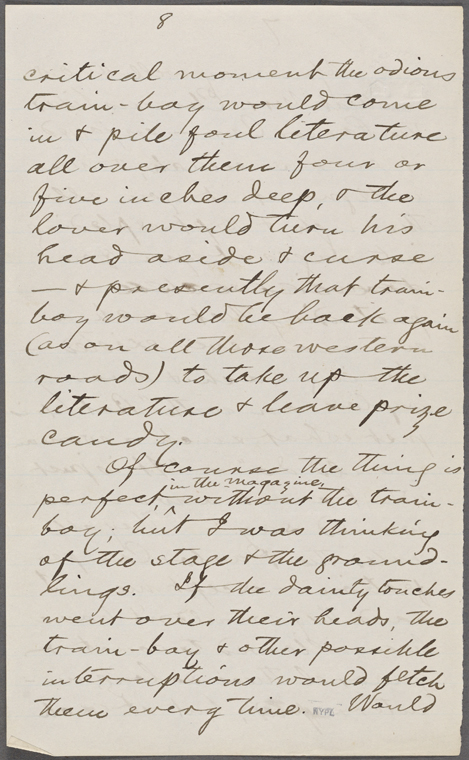 8
critical moment the odious
train-boy would come
in & pile foul literature
all over them four or
five inches deep, & the
lover would turn his
head aside & curse
— & presently that train-
boy would be back again
(as on all those western
roads) to take up the
literature & leave prize
candy.
Of course the thing is
in the magazine,
perfect, without the train-
boy; but I was thinking
of the stage & the ground-
lings. If the dainty touches
went over their heads, the
train-boy & other possible
interruptions would fetch
them every time. Would
NYPL